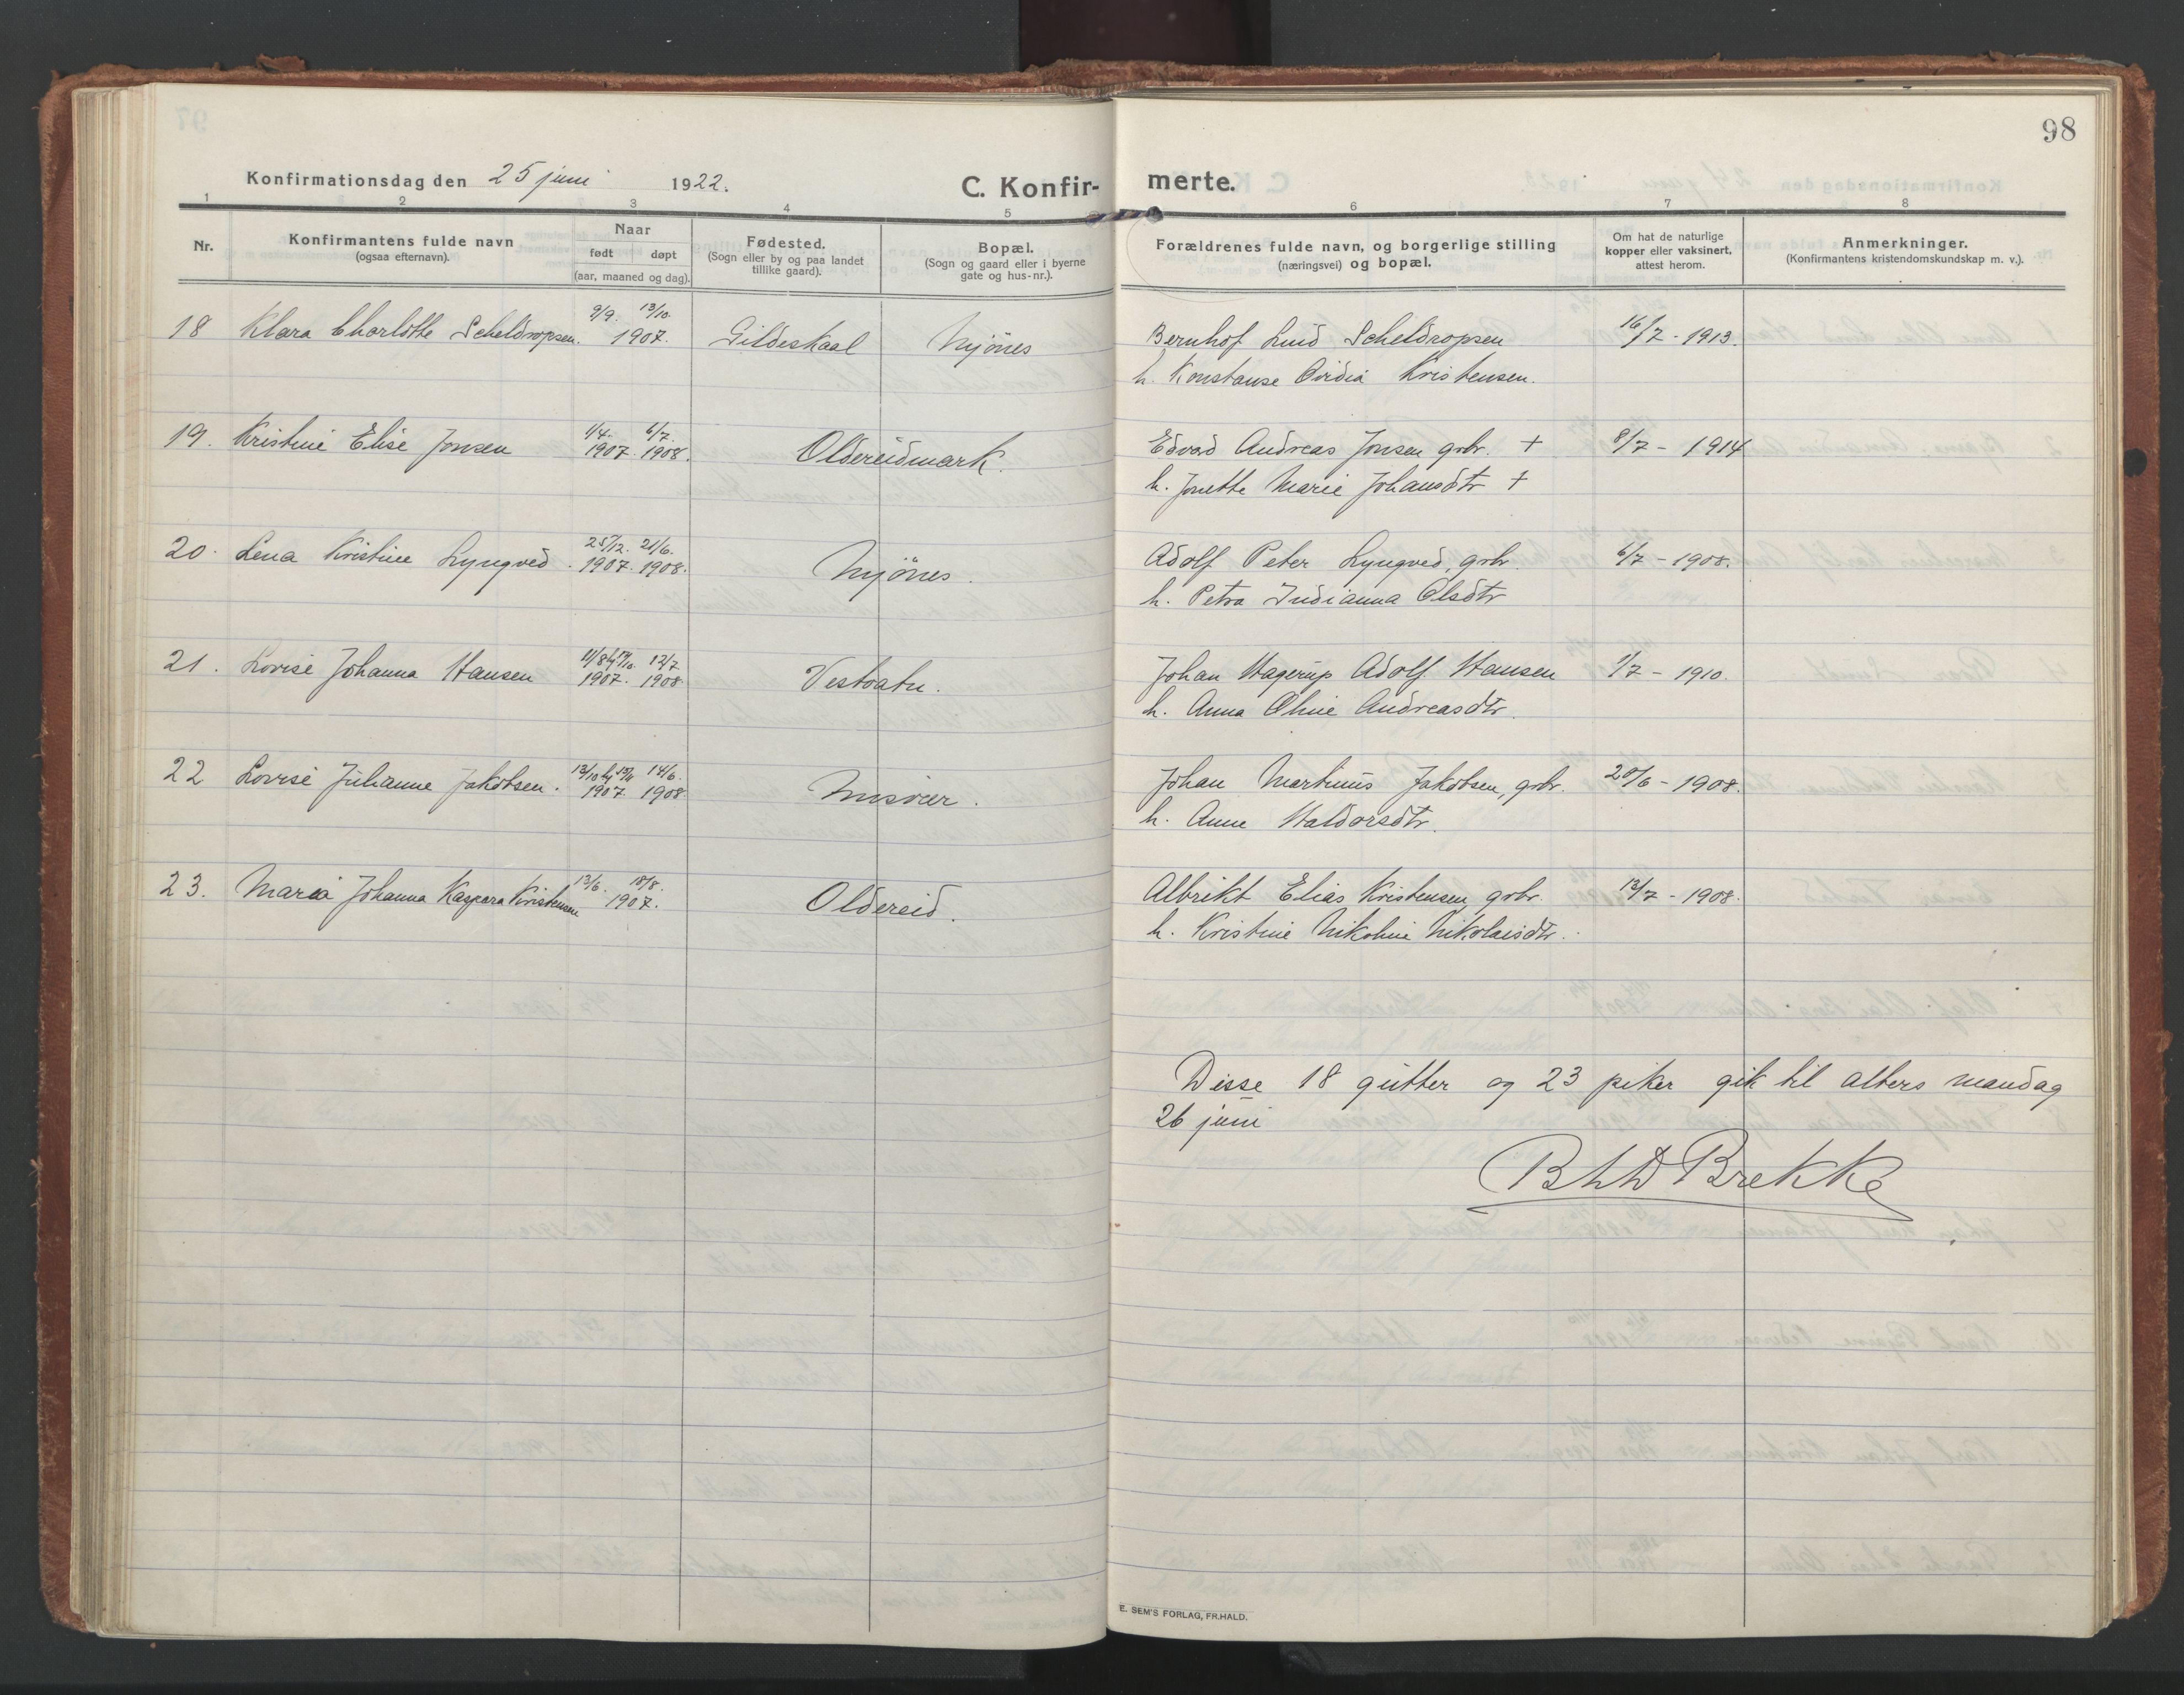 98
Konfirmationsdag den 25 juni 1922.
C. Konfir- merte.
1 2 3 4 5 6 7 8
Nr.
Konfirmantens fulde navn
(ogsaa efternavn).
Naar
født døpt
(aar, maaned og dag).
Fødested.
(Sogn eller by og paa landet
tillike gaard).
Bopæl.
(Sogn og gaard eller i byerne
gate og hus-nr.).
Forældrenes fulde navn, og borgerlige stilling
(næringsvei) og bopæl.
Om hat de naturlige
kopper eller vaksinert,
attest herom.
Anmerkninger.
(Konfirmantens kristendomskundskap m. v.).
9/9. 13/10.
18 Klara Charlotte Scheldropsen. 1907. Gildeskaal Mjönes Bernhof Luid Scheldropsen 16/7 - 1913.
h. Konstanse Ovidia Kristensen.
1/4. 6/7.
19. Kristine Elise Jonsen 1907. 1908. Oldereidmark. Edvard Andreas Jonsen grbr. + 8/7 - 1914
h. Jonette Marie Johansdtr +
25/12. 21/6.
20. Lena Kristine Lyngved. 1907. 1908. Mjönes. Adolf Peter Lyngved, grbr. 6/7 - 1908.
h. Petra Indianna Olsdtr
11/8 12/7
21. Lovise Johanna Hansen 1907. 1908 Vestvatn. Johan Hagerup Adolf Hansen 1/7 - 1910.
h. Anna Oline Andreasdtr.
13/10 14/6.
22 Lovise Julianne Jakobsen. 1907. 1908 Misvær. Johan Martinus Jakobsen, grbr. 20/6 - 1908.
h. Anne Haldorsdtr.
13/6. 18/8.
23. Maria Johanna Kaspara Kristensen 1907. Oldereid. Albrikt Elias Kristensen, grbr. 13/7 - 1908.
h. Kristine Nikoline Nikolaisdtr.
Disse 18 gutter og 23 piker gik til alters mandag
26 juni
Brekke
E. SEM'S FORLAG, FR.HALD.